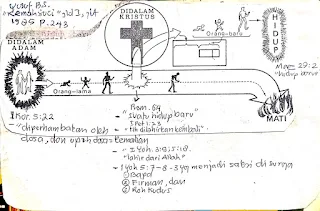 Yusuf B.S.
"Kembali ke..." Jld I, jlt
1985 P. 243
DIDALAM
ADAM
DIDALAM
KRISTUS
Orang-baru
HIDUP
Maz 27:2
"hidup baru"
Orang-lama
MATI
Rom. 6:4
"suatu hidup baru"
I Kor. 5:22
1 Pet 1:23
"diperhambatan oleh
"tlh dilahirkan kembali"
dosa, dan upah dan kematian
I Yoh. 3:9; 5:18.
"lahir dari Allah"
I Yoh 5:7-8 - 3 yg menjadi saksi di surga
① Bapa
② Firman, dan
③ Roh Kudus